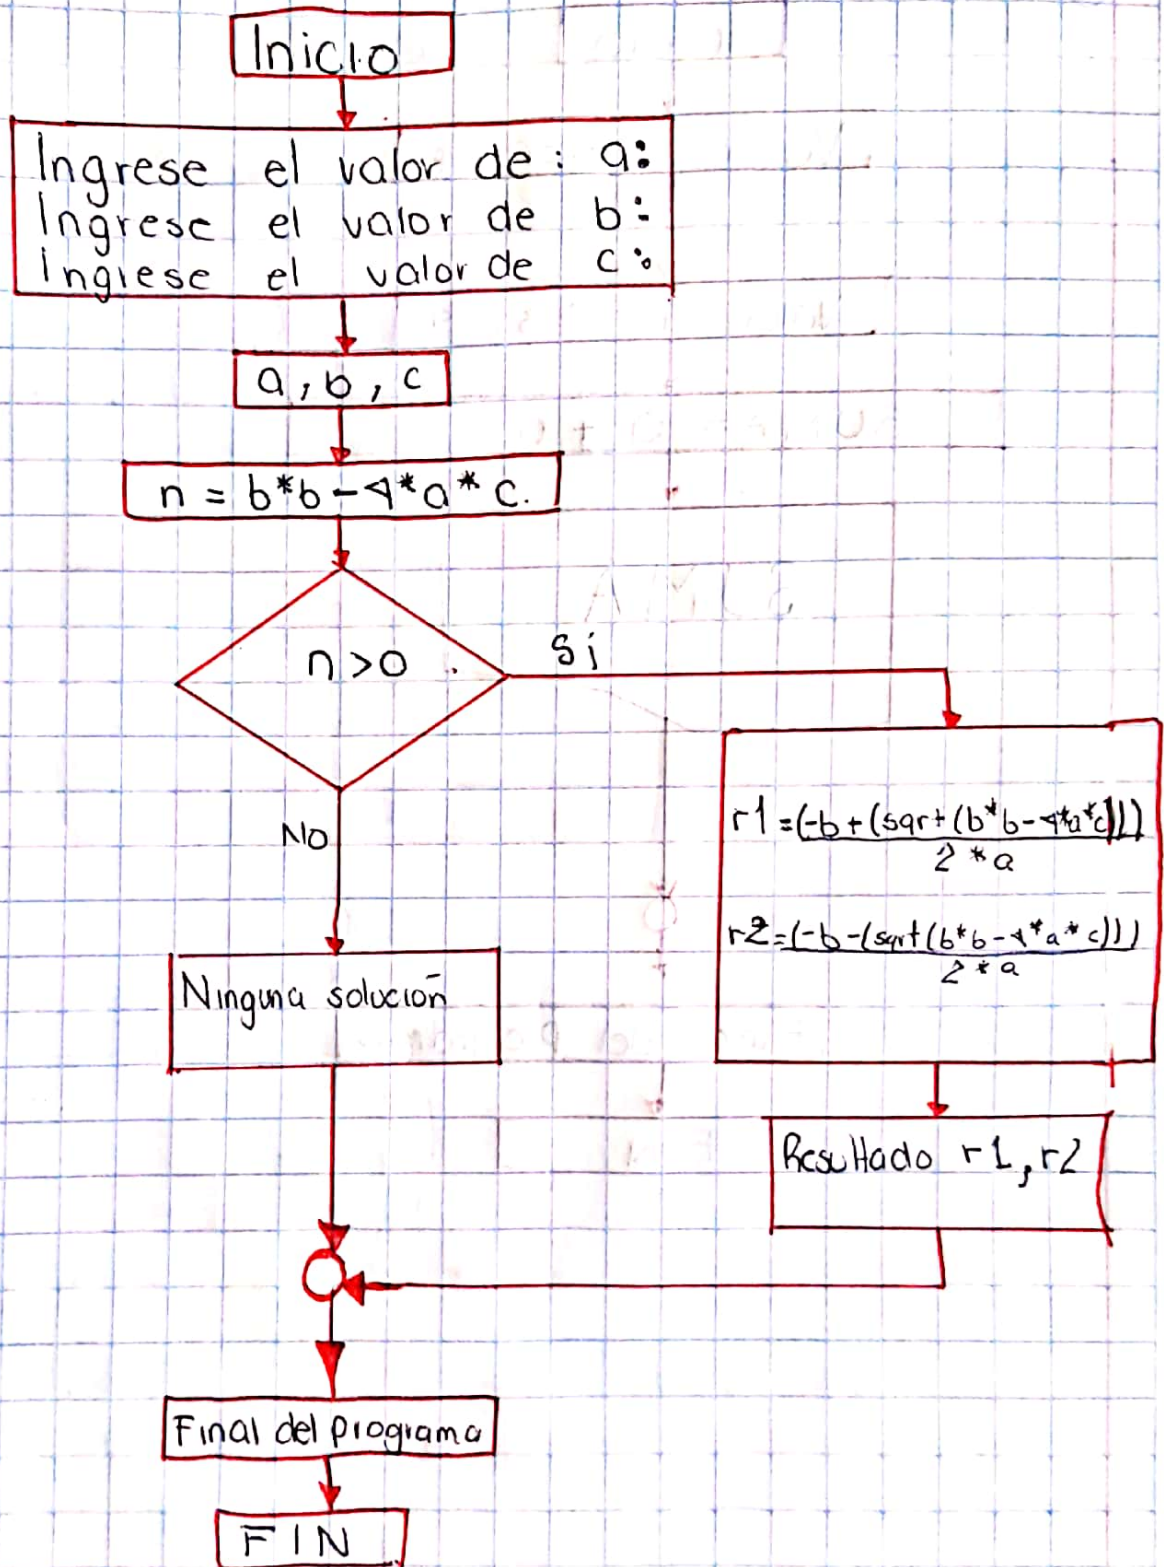 Inicio
Ingrese el valor de: a:
Ingrese el valor de b:
Ingrese el valor de c:
a, b, c
n = b*b-4*a*c.
n>0
Si
r1=(-b+(sqrt(b*b-4*a*c)))
2*a
r2=(-b-(sqrt(b*b-4*a*c)))
2*a
NO
Ninguna solución
Resultado r1, r2
Final del programa
FIN